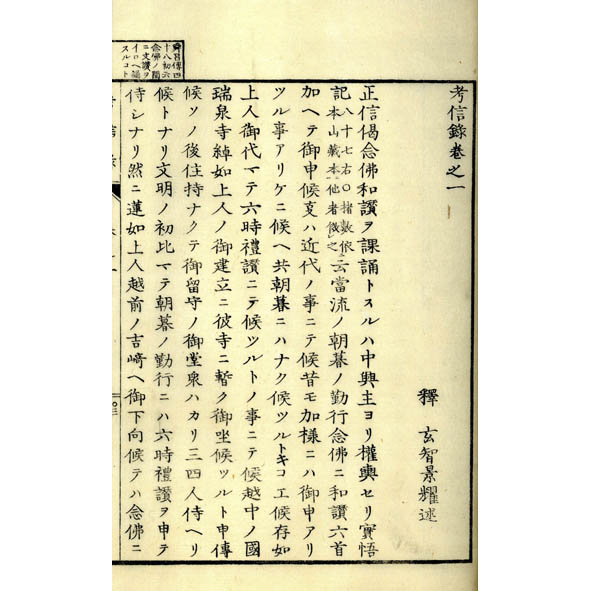 考信錄卷之一
釋 玄智景耀述
正信偈念佛和讃ヲ課誦トスルハ中興主ヨリ權輿セリ實悟
記八十七右〇指數依本山藏本他者傚之云當流ノ朝暮ノ勤行念佛ニ和讃六首
加ヘテ御申候叓ハ近代ノ事ニテ候昔モ加樣ニハ御申アリ
ツル事アリケニ候ヘ共朝暮ニハナク候ツルトキコエ候存如
上人御代マテ六時禮讃ニテ候ツルトノ事ニテ候越中ノ國
瑞泉寺綽如上人ノ御建立ニ彼寺ニ暫ク御坐候ツルト申傳
候ソノ後住持ナクテ御留守ノ御堂衆ハカリ三四人侍ヘリ
候トナリ文明ノ初比マテ朝暮ノ勤行ニハ六時禮讃ヲ申テ
侍シナリ然ニ蓮如上人越前ノ吉﨑ヘ御下向候テハ念佛ニ
十八初六
念佛ノ間
ニ文讃ヲ
スルコト